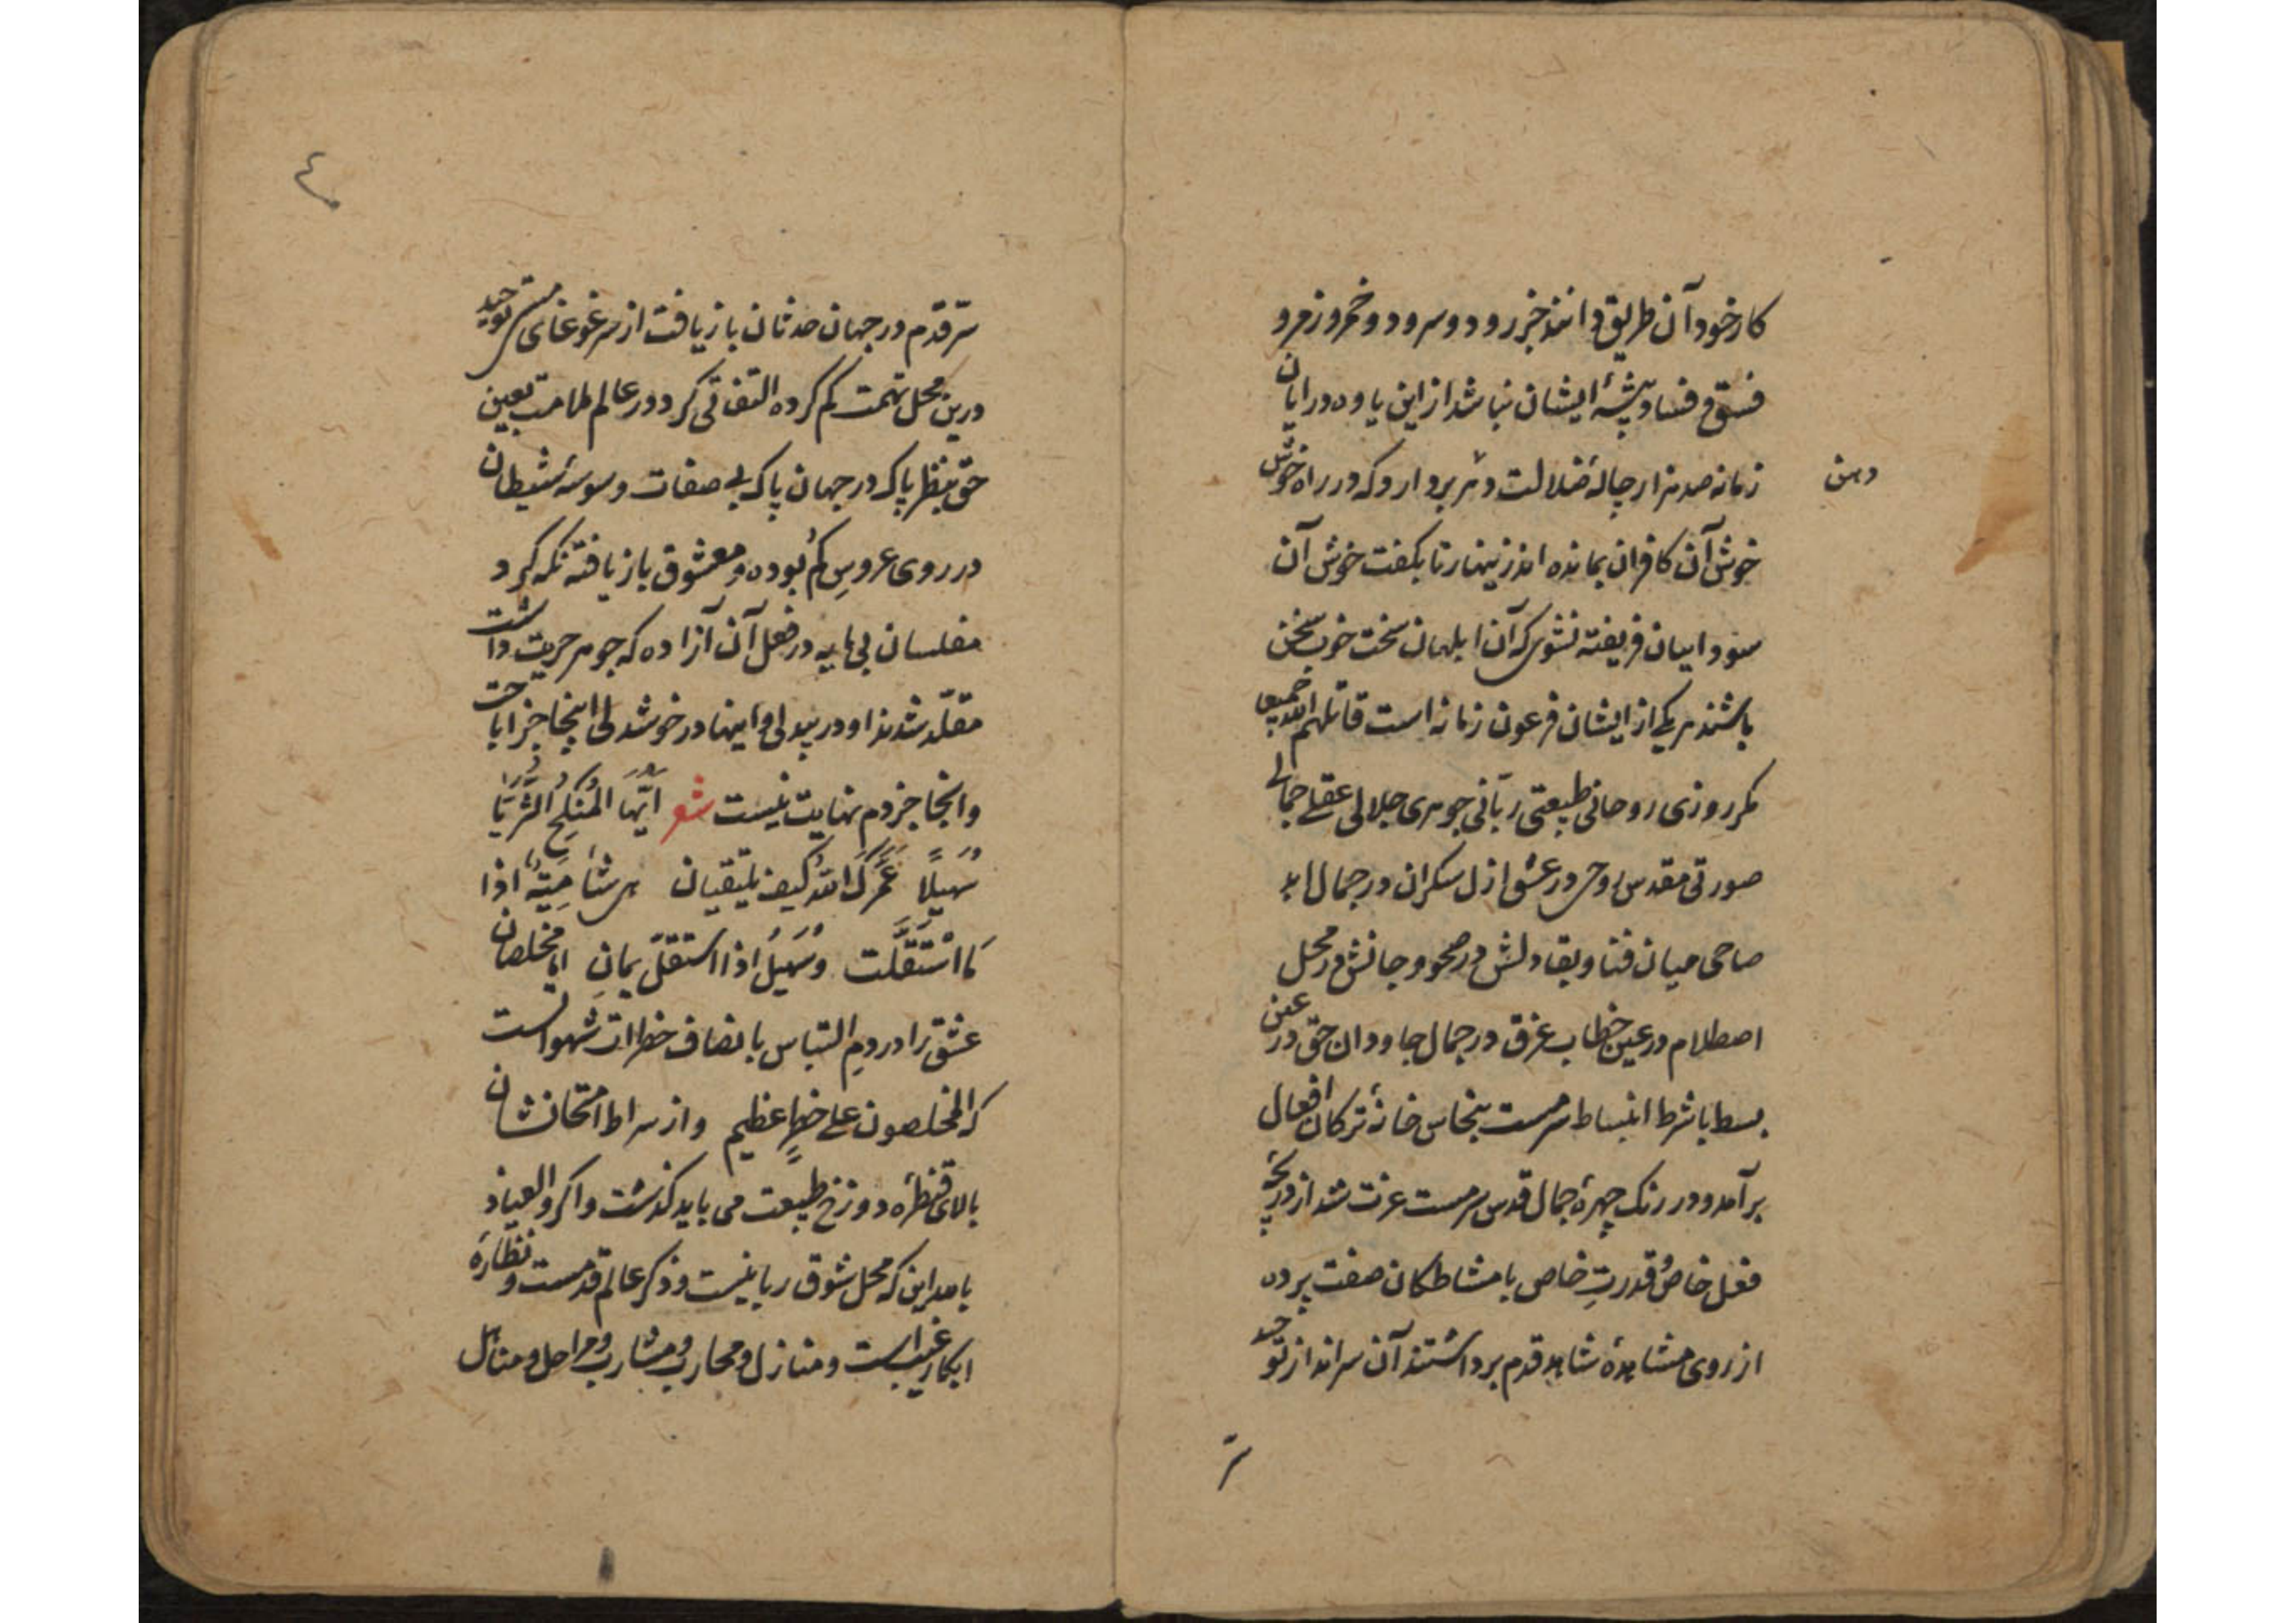 کار خود آن طریق دانند خبر رود و سرود و خمر و زمر و
فسق و فساد پیشهٔ ایشان نباشد از این یاوه درایان
زمانه صد هزار چالهٔ ضلالت دثر بردارد که در راه خوش
دهن
خوش آن کافران بمانده اند زینهار تا بکفت خوش آن
سودابیان فریفته نشوی که آن ابلهان سخت خوب سخن
باشند هر یکی از ایشان فرعون زمانه است قاتلهم الله جمیعا
مکر روزی روحانی طبیعتی ربّانی جوهری جلالی عقلی جمالی
صورتی مقدس روحی در عشق ازل سکران در جمال ابد
صاحی میان فنا و بقا دلش در صحو و جانش در محل
اصطلام در عین خطاب غرق در جمال جاودان حق در عین
بسط با شرط انبساط سرمست بنخاس خانهٔ ترکان افعال
برآمد و در رنک چهرهٔ جمال قدس سرمست عزت شد از دریچهٔ
فعل خاصُ قدرتِ خاص با مشاطکان صفت پرده
از روی مشاهدهٔ شاهد قدم برداشتند آن سرانداز توحید
سّر
٤
سّر قدم در جهان حدثان باز یافت از سر غوغای مستی توحید
درین محل تهمت کم کرده التفاتی کرد و در عالم ملاحت بعین
حق بنظر پاک در جهان پاک بی صفات وسوسهٔ شیطان
در روی عروسِ کُم بوده و معشوق باز یافته نکه کرد
مفلسان بی مایه در فعل آن آزاده که جوهر حریت داشت
مقلّد شدند او در بیدلی و اینها در خوشدلی اینجا جز اباحت
وانجا جز دم نهایت نیست شعر ایّها المُنکِحُ الثُّرَیّا
سُهیلًا عَمَّرَکَ الله کیف یلتقیان هی شامِیَّهٌ اذا
مَا اسْتَقَلَّت وَسُهَیلُ اذا استقلّ یمانِ ایا مخلصان
عشق ترا در دمِ التباس با انصاف خطرات شهوانست
که المخلصون علی خطرٍ عظیم و از سراط امتحانشان
بالای قنطرهٔ دوزخ طبیعت می باید کذشت و اکر والعیاذ
با صدر این که محل شوق ربانیست و ذکر عالم قدمست و نظارهٔ
ابکار غیب است و منازل و محارب و مشارب و مراحل و مناهل